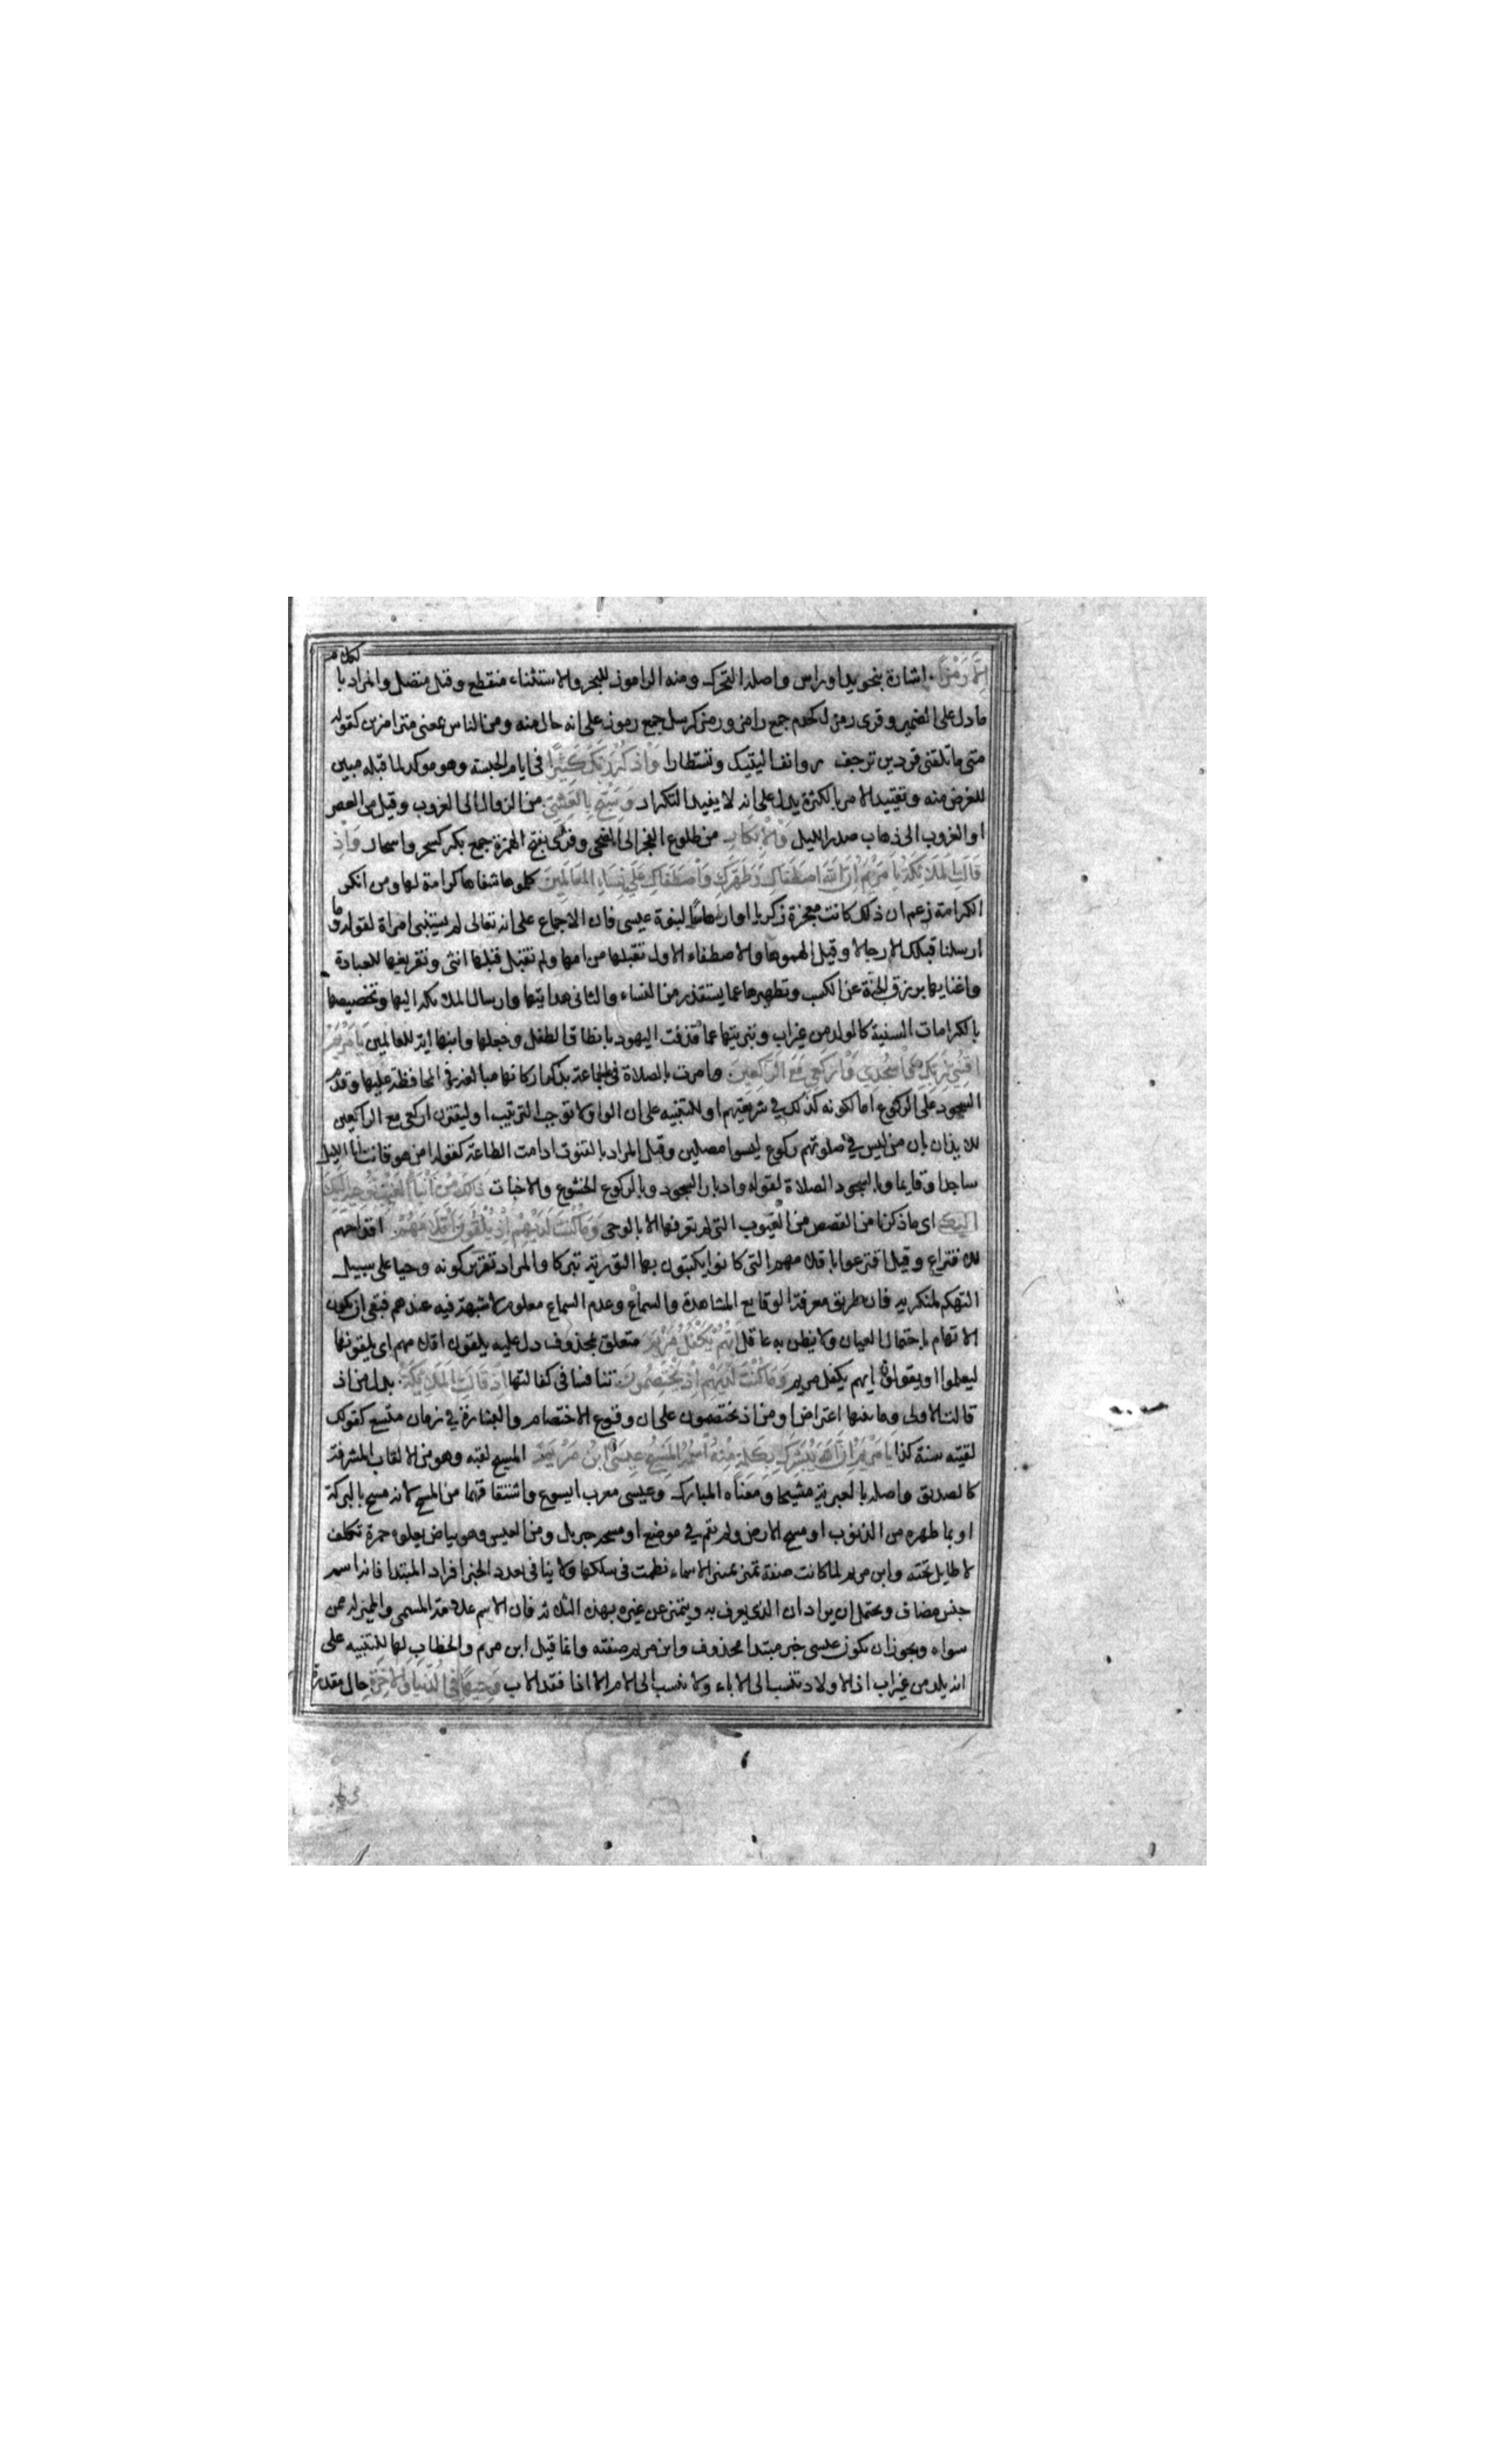 إلا رمزا اشارة بنحو يد او راس واصله التحرك ومنه الراموز للبحر والاستثناء منقطع وقيل متصل والمراد بالكلام
ما دل على الضمير وقرئ رمزا كخدم جمع رامز ورمزا كرسل جمع رموز على انه حال منه ومن الناس بمعنى مترامزين كقوله
متى ما تلقني فردين ترجف روانف اليتيك وتستطارا واذكر ربك كثيرا في ايام الحبسة وهو موكد لما قبله مبين
للغرض منه وتقييد الامر بالكثرة يدل على انه لا يفيد التكرار وسبح بالعشي من الزوال الى الغروب وقيل من العصر
او الغروب الى ذهاب صدر الليل والابكار من طلوع الفجر الى الضحى وقرئ بفتح الهمزة جمع بكر كسحر واسحار واذ
قالت الملائكة يا مريم ان الله اصطفاك وطهرك واصطفاك على نساء العالمين كلموها شفاها كرامة لها ومن انكر
الكرامة زعم ان ذلك كانت معجزة زكريا او ارهاصا لنبوة عيسى فان الاجماع على انه تعالى لم يستنبئ امراة لقوله وما
ارسلنا قبلك الا رجالا وقيل الهموها والاصطفاء الاول تقبلها من امها ولم تقبل قبلها انثى وتفريغها للعبادة
واغنايها برزق الجنة عن الكسب وتطهيرها عما يستقذر من النساء والثاني هدايتها وارسال الملائكة اليها وتخصيصها
بالكرامات السنية كالولد من غير اب وتبريتها عما قذفت اليهود بانطاق الطفل وجعلها وابنها اية للعالمين يا مريم
اقنتي لربك واسجدي واركعي مع الراكعين امرت بالصلاة في الجماعة بذكر اركانها مبالغة في المحافظة عليها وقدم
السجود على الركوع اما لكونه كذلك في شريعتهم او للتنبيه على ان الواو لا توجب الترتيب او ليقترن اركعي مع الراكعين
للايذان بان من ليس في صلوتهم ركوع ليسوا مصلين وقيل المراد بالقنوت ادامت الطاعة كقوله امن هو قانت اناء الليل
ساجدا وقايما وبالسجود الصلاة لقوله وادبار السجود وبالركوع الخشوع والاخبات ذلك من انباء الغيب نوحيه اليك
اليك اى ما ذكرنا من القصص من الغيوب التي لم تعرفها الا بالوحى وما كنت لديهم اذ يلقون اقلامهم اقداحهم
للاقتراع وقيل اقترعوا باقلامهم التي كانوا يكتبون بها التورية تبركا والمراد تقرير كونه وحيا على سبيل
التهكم لمنكريه فان طريق معرفة الوقايع المشاهدة والسماع وعدم السماع معلوم لا شبهة فيه عندهم فبقي ان يكون
الاتهام باحتمال العيان ولا يظن به عاقل ايهم يكفل مريم متعلق بمحذوف دل عليه يلقون اقلامهم اى يلقونها
ليعلموا او يقولوا ايهم يكفل مريم وما كنت لديهم اذ يختصمون تنافسا في كفالتها اذ قالت الملائكة بدل من اذ
قالت الاولى وما بينهما اعتراض او من اذ يختصمون على ان وقوع الاختصام والبشارة في زمان متسع كقولك
لقيته سنة كذا يا مريم ان الله يبشرك بكلمة منه اسمه المسيح عيسى ابن مريم المسيح لقبه وهو من الالقاب المشرفة
كالصديق واصله بالعبرية مشيحا ومعناه المبارك وعيسى معرب ايسوع واشتقاقهما من المسح لانه مسح بالبركة
او بما طهره من الذنوب او مسح الارض ولم يقم في موضع او مسحه جبريل ومن العيس وهو بياض يعلوه حمرة تكلف
لا طايل تحته وابن مريم لما كانت صفة تميز تمييز الاسماء نظمت في سلكها ولا ينافي تعدد الخبر افراد المبتدا فانه اسم
جنس مضاف ويحتمل ان يراد ان الذى يعرف به ويتميز عن غيره بهذه الثلاثة فان الاسم علامة المسمى والمميز له عمن
سواه ويجوز ان يكون عيسى خبر مبتدا محذوف وابن مريم صفته وانما قيل ابن مريم والخطاب لها للتنبيه على
انه يلد من غير اب اذ الاولاد تنسب الى الاباء ولا تنسب الى الام الا اذا فقد الاب وجيها في الدنيا والاخرة حال مقدرة